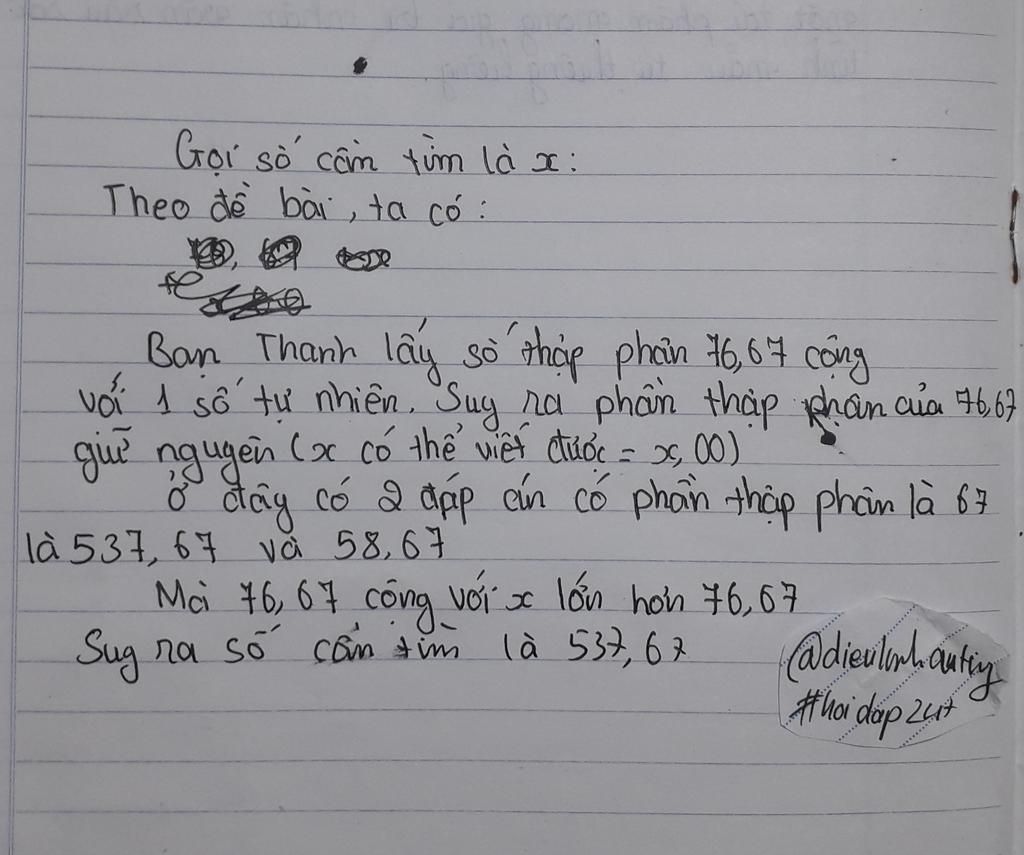 Gọi số cần tìm là x:
Theo đề bài, ta có:
Bạn Thanh lấy số thập phân 76,67 cộng
với 1 số tự nhiên. Suy ra phần thập phân của 76,67
giữ nguyên (x có thể viết được = x,00)
Ở đây có 2 đáp án có phần thập phân là 67
là 537,67 và 58,67
Mà 76,67 cộng với x lớn hơn 76,67
Suy ra số cần tìm là 537,67
@dieulinhautiy
#hoidap247